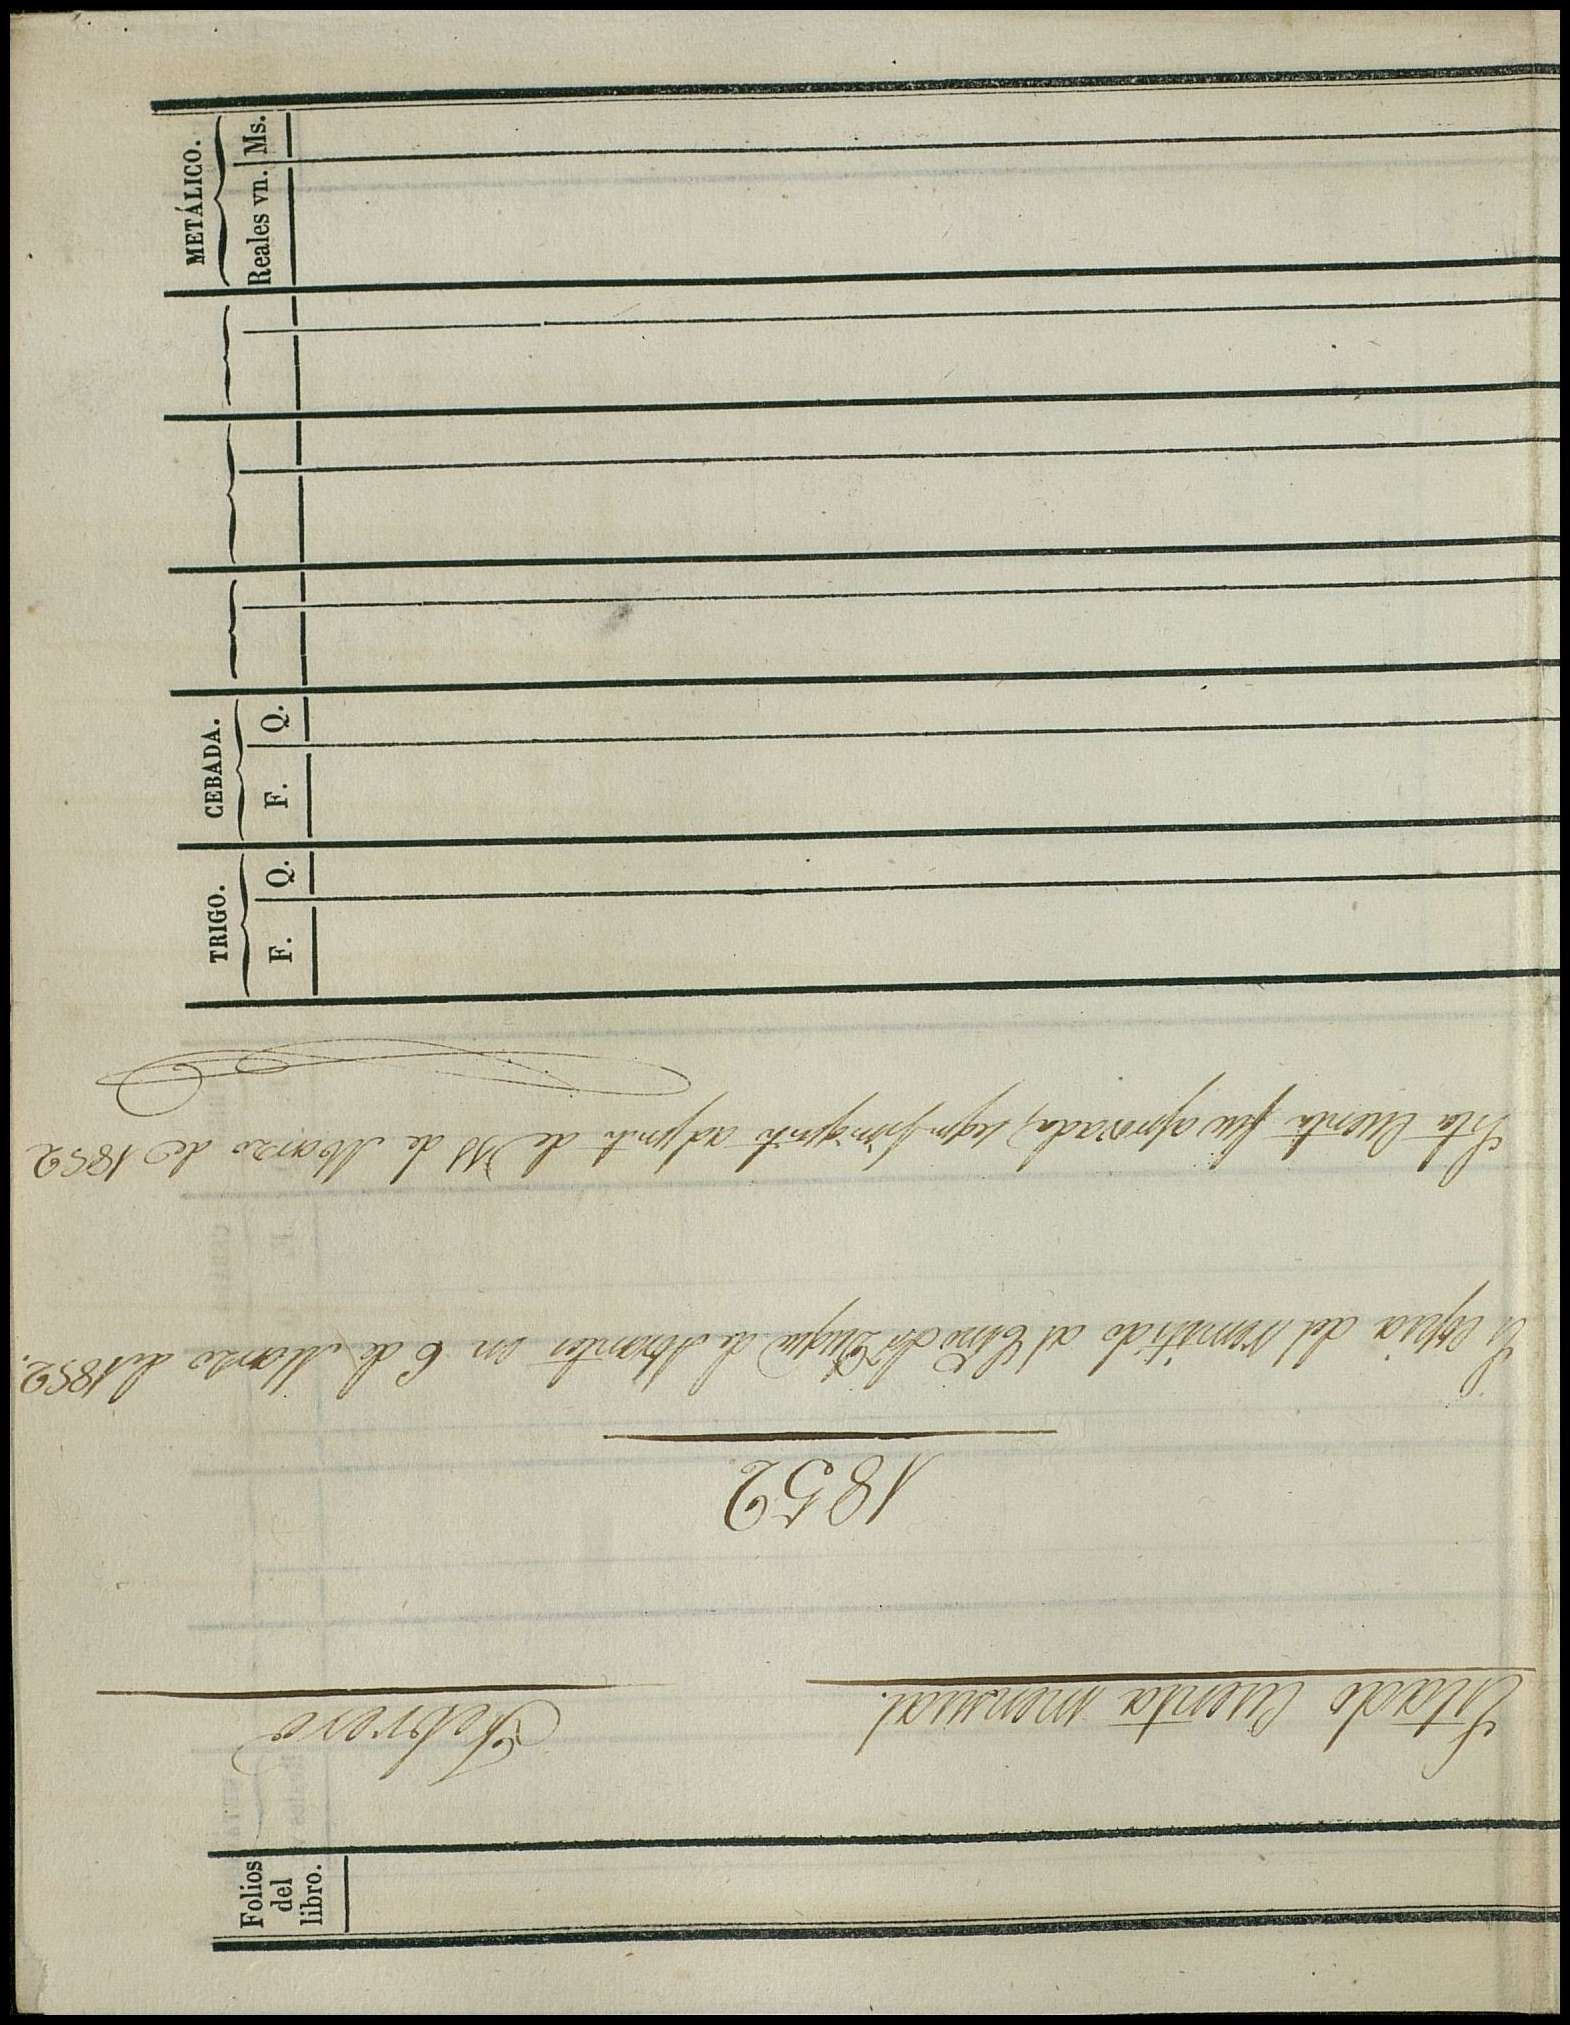 METÁLICO.
Reales vn. Ms.
CEBADA.
F. Q.
TRIGO.
F. Q.
Folios
del
libro.
Estado Cuenta mensual. Febrero
1852
Es copia del remitido al Exmo Sor Duque de Abrantes en 6 de Marzo de 1852.
Esta Cuenta fue aprovada, segun adjunto de 11 de Marzo de 1852